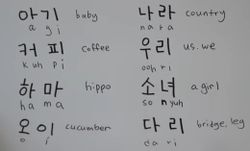 아기 baby
a gi
커피 coffee
kuh pi
하마 hippo
ha ma
오이 cucumber
o i
나라 country
na ra
우리 us. we
ooh ri
소녀 a girl
so nyuh
다리 bridge, leg
da ri